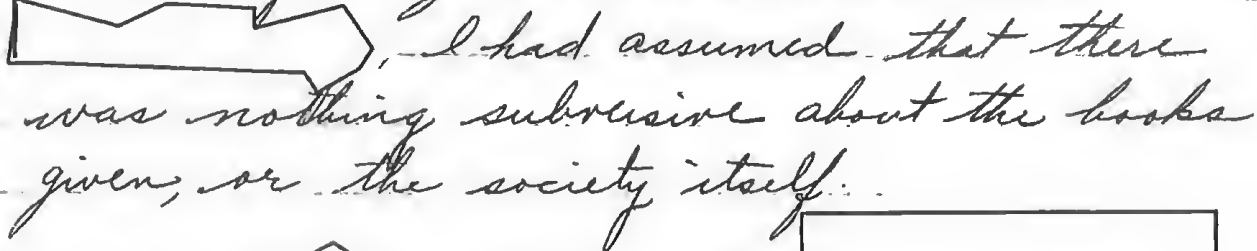 , I had assumed that there
was nothing subversive about the books
given, or the society itself.